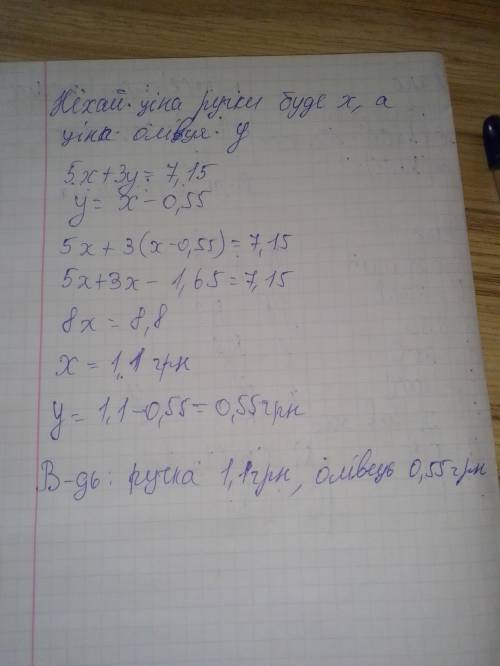 Нехай ціна ручки буде x, а
ціна олівця y
5x+3y=7,15
y=x-0,55
5x+3(x-0,55)=7,15
5x+3x-1,65=7,15
8x=8,8
x=1,1 грн
y=1,1-0,55=0,55грн
В-дь: ручка 1,1грн, олівець 0,55грн